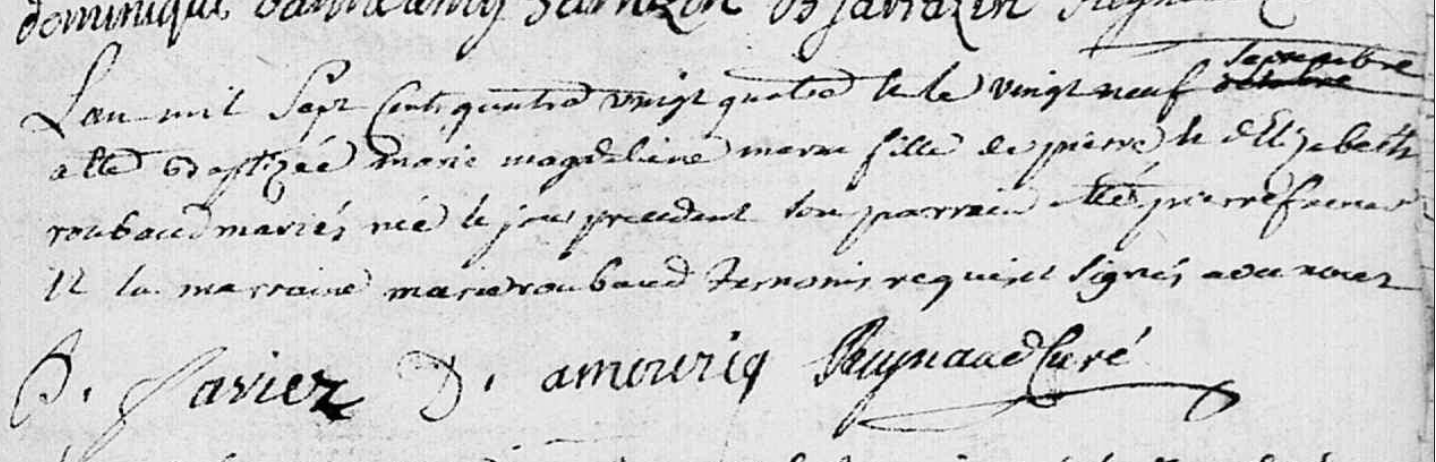 dominique
Septembre
L'an mil Sept Cents quatre vingt quatre et le vingt neuf octobre
a été Baptizée marie magdeleine fille de pierre et d'Elizabeth
roubaud mariés née le jour precedent son parrain a été pierre
Et la marraine marie roubaud temoins requis et signés avec nous
D. amouriq Reynaud Curé